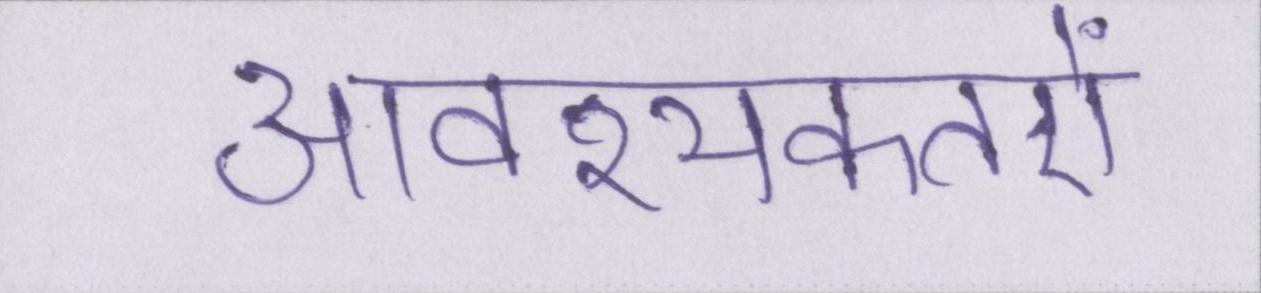 आवश्यकतरों